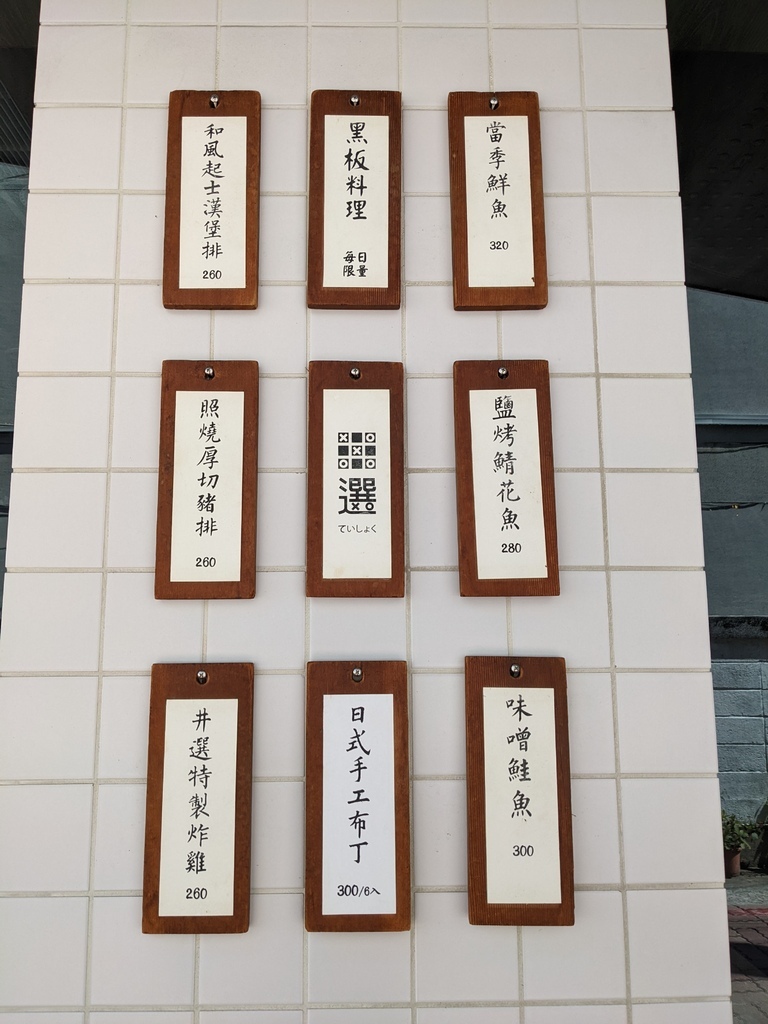 和風起士漢堡排
260
黑板料理
每日
限量
當季鮮魚
320
照燒厚切豬排
260
選
ていしょく
鹽烤鯖花魚
280
井選特製炸雞
260
日式手工布丁
300/6入
味噌鮭魚
300